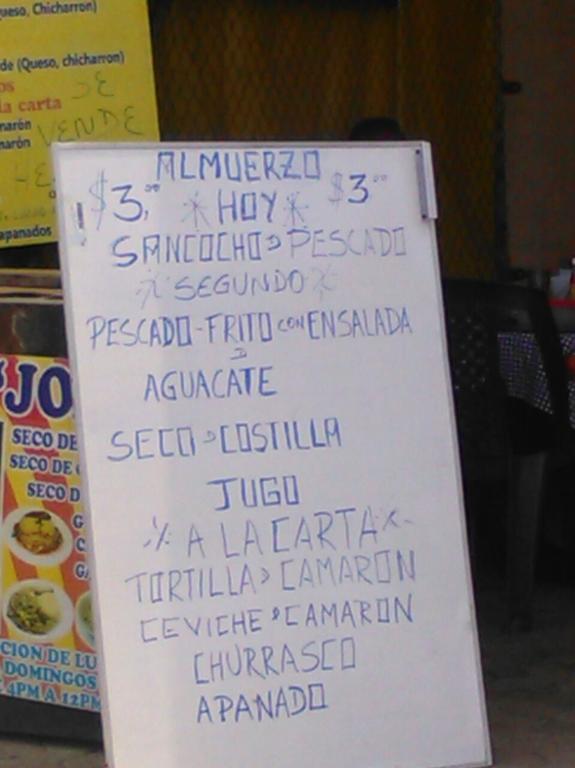 ueso, Chicharron)
de (Queso, chicharron)
os
la carta
marón
marón
SE
VENDE
apanados
ALMUERZO
$3,00 *HOY* $3.00
SANCOCHO D PESCADO
*SEGUNDO*
PESCADO-FRITO CON ENSALADA
D
AGUACATE
SECO D COSTILLA
JUGO
A LA CARTA
TORTILLA D CAMARON
CEVICHE D CAMARON
CHURRASCO
APANADO
JO
SECO DE
SECO DE
SECO D
CION DE LU
DOMINGOS
4PM A 12PM